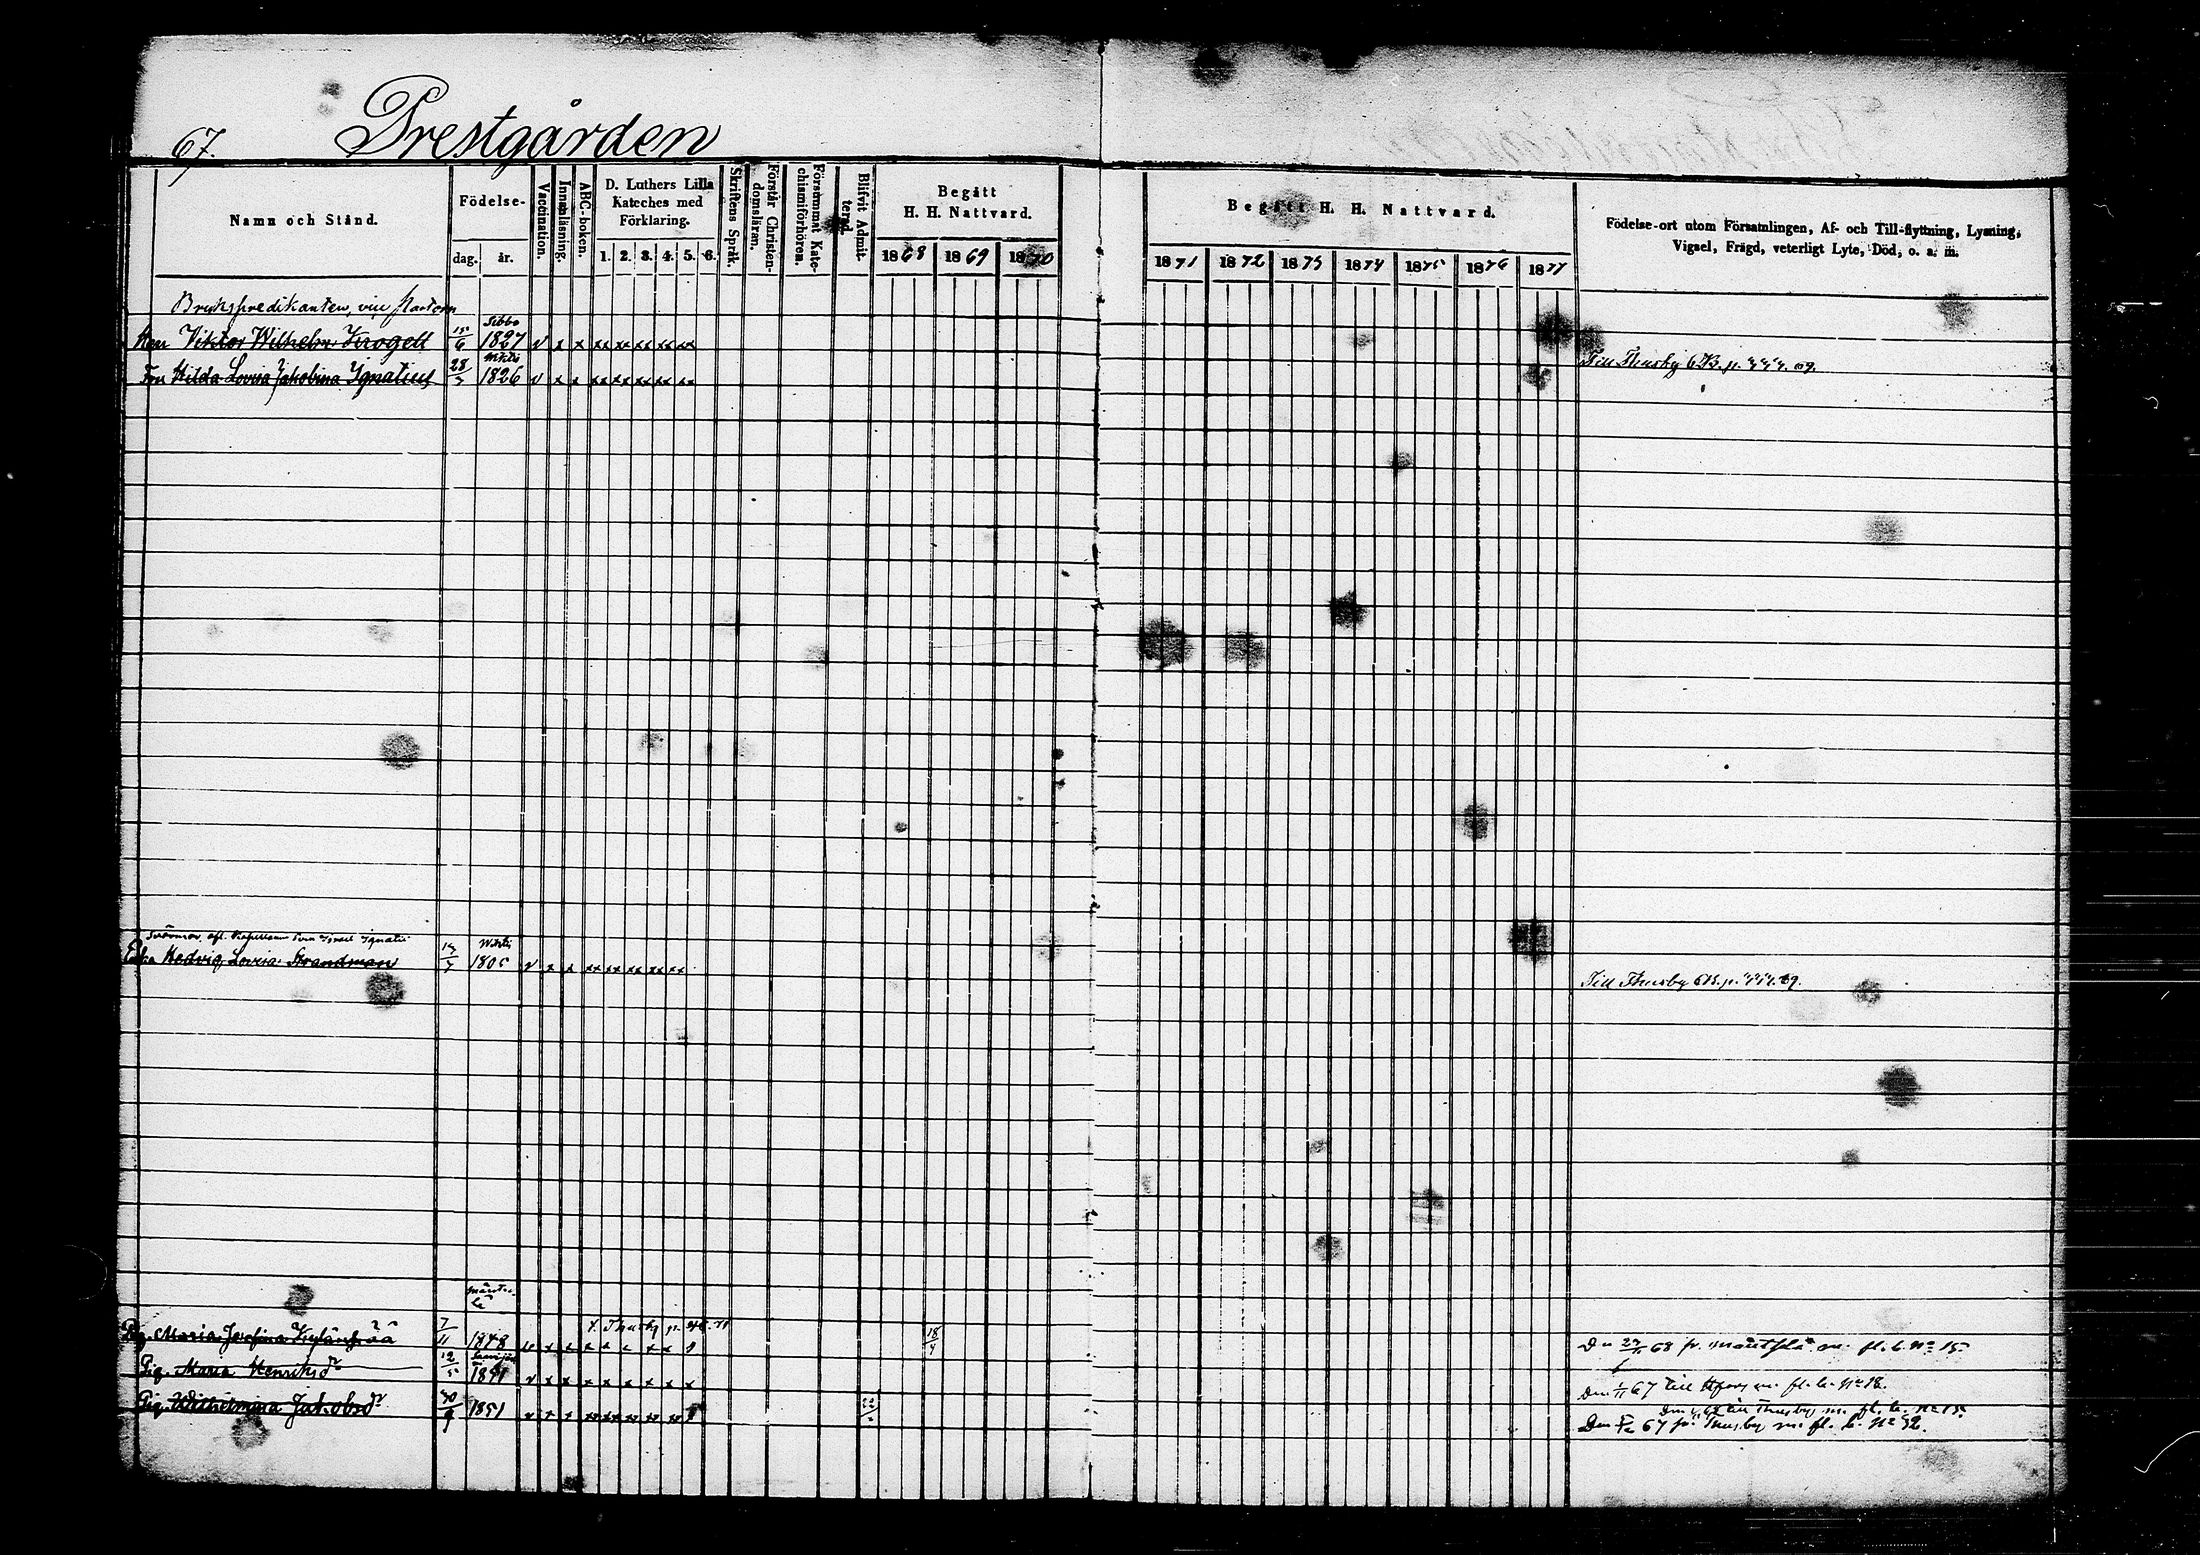 67. Prestgården
Namn och Stånd.
Födelse-
dag. år.
Vaccination.
Innanläsning.
ABC-boken.
D. Luthers Lilla Kateches med Förklaring.
1. 2. 3. 4. 5. 6.
Skriftens Språk.
Förstår Christen-domsläran.
Försummat Kate-chismiförhören.
Blifvit Admit-terad.
Begått H. H. Nattvard.
1868 1869 1870
Begått H. H. Nattvard.
1871 1872 1873 1874 1875 1876 1877
Födelse-ort utom Församlingen, Af- och Till-flyttning, Lysning, Vigsel, Frägd, veterligt Lyte, Död, o. s. m.
Brukspredikanten, vice Pastorn
Sibbo
Herr Viktor Wilhelm Krogell 15/6 1827 v x x xx xx xx xx xx
Fru Hilda Lovisa Jakobina Ignatius 28/7 1826 v x x xx xx xx xx xx Till Thusby KB. p. 69.
Svärmor, afl. Sven Israel Ignatii
Enka Hedvig Lovisa Strandman 1805 v x x xx xx xx xx xx Till Thusby KB. p. 69.
Mäntsälä
Pig. Maria Josefina 7/11 1848 t. Thusby p. 18/4 Den 27/11 68 fr. Mäntsälä m. fl. b. No 15.
Pig. Maria Henriksdr 12/5 1841 v x x x x x x x Den 1/11 67 till Hfors m. fl. b. No 18.
Den 68 till Thusby m. fl. b. No 15.
Pig. Wilhelmina Jakobsdr 30/9 1851 v x x xx xx xx xx Den 67 från Thusby m. fl. b. No 32.